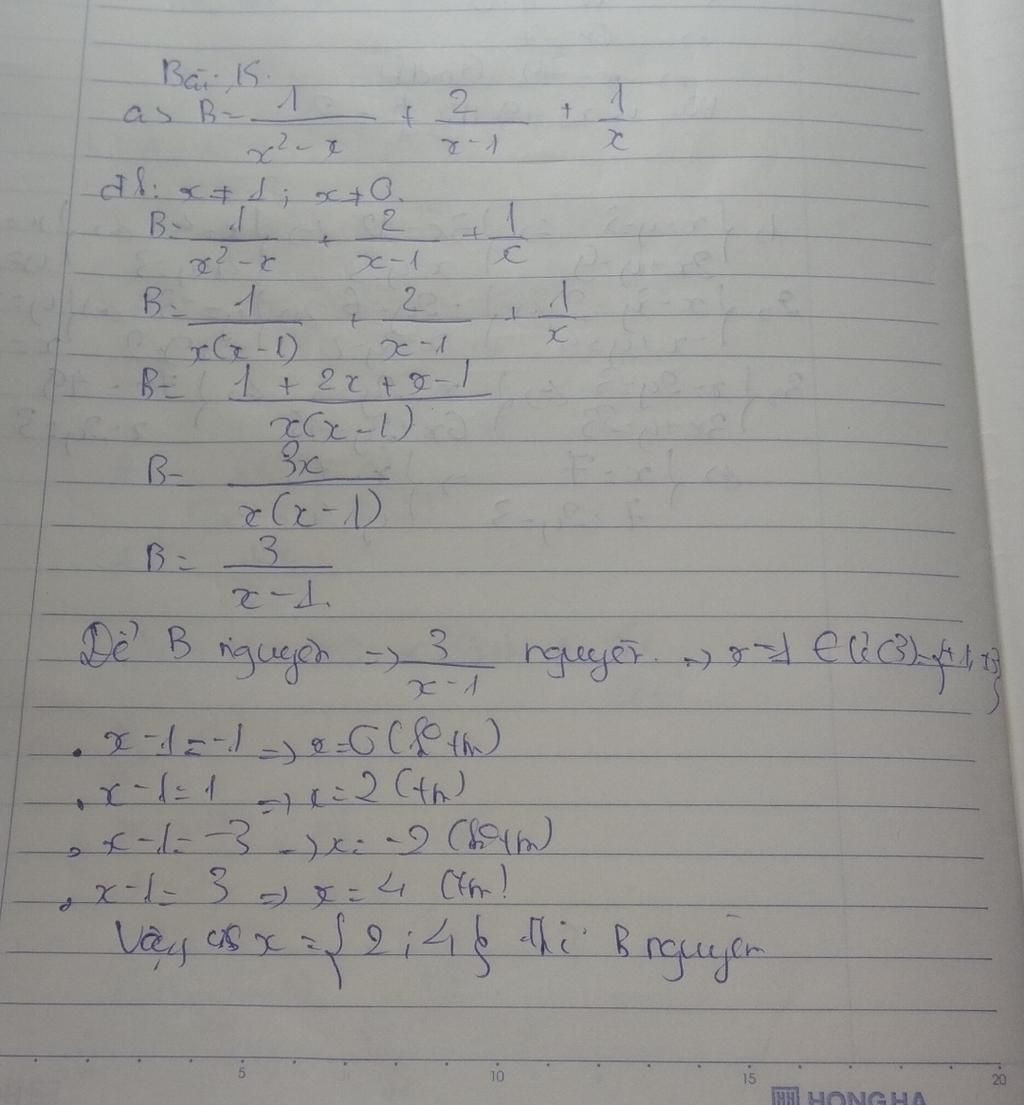 Bài 15.
a> B = 1/(x² - x) + 2/(x-1) + 1/x
đk: x ≠ 1; x ≠ 0.
B = 1/(x² - x) + 2/(x-1) + 1/x
B = 1/(x(x-1)) + 2/(x-1) + 1/x
B = (1 + 2x + x - 1)/(x(x-1))
B = 3x/(x(x-1))
B = 3/(x-1).
Để B nguyên => 3/(x-1) nguyên. => x-1 ∈ Ư(3) = {±1, ±3}
. x-1 = -1 => x = 0 (ko tm)
. x-1 = 1 => x = 2 (tm)
. x-1 = -3 => x = -2 (ko tm)
. x-1 = 3 => x = 4 (tm)
Vậy x = {2; 4} thì B nguyên
5 10 15 20
HONG HA